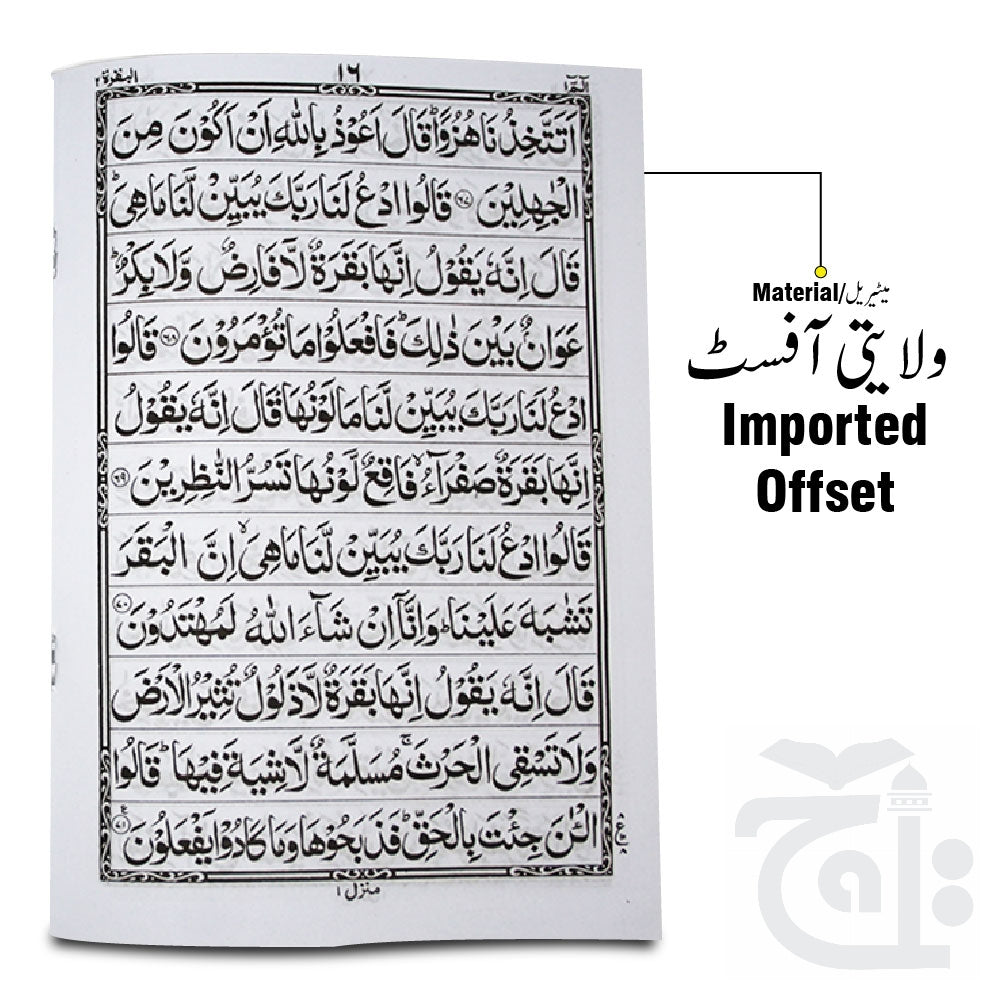 البقرة ٢
١٦
الٓمّٓ ١
اَتَتَّخِذُنَا هُزُوًا ؕ قَالَ اَعُوْذُ بِاللّٰهِ اَنْ اَكُوْنَ مِنَ
الْجٰهِلِيْنَ ﴿۶۷﴾ قَالُوا ادْعُ لَنَا رَبَّكَ يُبَيِّنْ لَّنَا مَا هِىَ ؕ
قَالَ اِنَّهٗ يَقُوْلُ اِنَّهَا بَقَرَةٌ لَّا فَارِضٌ وَّلَا بِكْرٌ ؕ
عَوَانٌۢ بَيْنَ ذٰلِكَ ؕ فَافْعَلُوْا مَا تُؤْمَرُوْنَ ﴿۶۸﴾ قَالُوا
ادْعُ لَنَا رَبَّكَ يُبَيِّنْ لَّنَا مَا لَوْنُهَا ؕ قَالَ اِنَّهٗ يَقُوْلُ
اِنَّهَا بَقَرَةٌ صَفْرَآءُ ۙ فَاقِعٌ لَّوْنُهَا تَسُرُّ النّٰظِرِيْنَ ﴿۶۹﴾
قَالُوا ادْعُ لَنَا رَبَّكَ يُبَيِّنْ لَّنَا مَا هِىَ ۙ اِنَّ الْبَقَرَ
تَشٰبَهَ عَلَيْنَا ؕ وَاِنَّاۤ اِنْ شَآءَ اللّٰهُ لَمُهْتَدُوْنَ ﴿۷۰﴾
قَالَ اِنَّهٗ يَقُوْلُ اِنَّهَا بَقَرَةٌ لَّا ذَلُوْلٌ تُثِيْرُ الْاَرْضَ
وَلَا تَسْقِى الْحَرْثَ ۚ مُسَلَّمَةٌ لَّا شِيَةَ فِيْهَا ؕ قَالُوا
الْـٰٔنَ جِئْتَ بِالْحَقِّ ؕ فَذَبَحُوْهَا وَمَا كَادُوْا يَفْعَلُوْنَ ﴿۷۱﴾
منزل ١
Material/میٹیریل
ولایتی آفسٹ
Imported
Offset